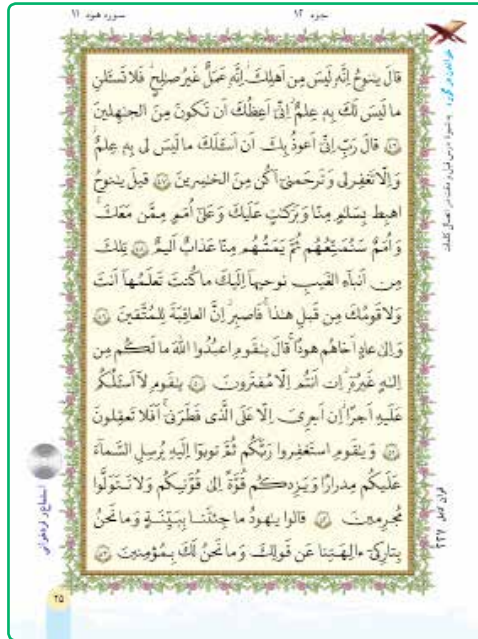 سوره هود ۱۱
جزء ۱۲
قالَ یٰنوحُ اِنَّهٗ لَیسَ مِن اَهلِکَ ۖ اِنَّهٗ عَمَلٌ غَیرُ صٰلِحٍ ۖ فَلا تَسئَلنِ
ما لَیسَ لَکَ بِهٖ عِلمٌ ۖ اِنّٓی اَعِظُکَ اَن تَکونَ مِنَ الجٰهِلینَ
۴۶ قالَ رَبِّ اِنّٓی اَعوذُ بِکَ اَن اَسئَلَکَ ما لَیسَ لی بِهٖ عِلمٌ ۖ
وَ اِلّا تَغفِر لی وَ تَرحَمنٓی اَکُن مِنَ الخٰسِرینَ ۴۷ قیلَ یٰنوحُ
اهبِط بِسَلٰمٍ مِنّا وَ بَرَکٰتٍ عَلَیکَ وَ عَلیٰٓ اُمَمٍ مِمَّن مَعَکَ ۚ
وَ اُمَمٌ سَنُمَتِّعُهُم ثُمَّ یَمَسُّهُم مِنّا عَذابٌ اَلیمٌ ۴۸ تِلکَ
مِن اَنبآءِ الغَیبِ نوحیهآ اِلَیکَ ۖ ما کُنتَ تَعلَمُهآ اَنتَ
وَ لا قَومُکَ مِن قَبلِ هٰذا ۖ فَاصبِر ۖ اِنَّ العاقِبَةَ لِلمُتَّقینَ ۴۹
وَ اِلیٰ عادٍ اَخاهُم هودًا ۚ قالَ یٰقَومِ اعبُدُوا اللّٰهَ ما لَکُم مِن
اِلٰهٍ غَیرُهٗٓ ۖ اِن اَنتُم اِلّا مُفتَرونَ ۵۰ یٰقَومِ لآ اَسئَلُکُم
عَلَیهِ اَجرًا ۖ اِن اَجرِیَ اِلّا عَلَی الَّذی فَطَرَنٓی ۚ اَفَلا تَعقِلونَ
۵۱ وَ یٰقَومِ استَغفِروا رَبَّکُم ثُمَّ توبوٓا اِلَیهِ یُرسِلِ السَّمآءَ
عَلَیکُم مِدرارًا وَ یَزِدکُم قُوَّةً اِلیٰ قُوَّتِکُم وَ لا تَتَوَلَّوا
مُجرِمینَ ۵۲ قالوا یٰهودُ ما جِئتَنا بِبَیِّنَةٍ وَ ما نَحنُ
بِتارِکیٓ ءالِهَتِنا عَن قَولِکَ وَ ما نَحنُ لَکَ بِمُؤمِنینَ ۵۳
استماع و فراخوانی
قرآن کامل ۲۲۷
۲۵